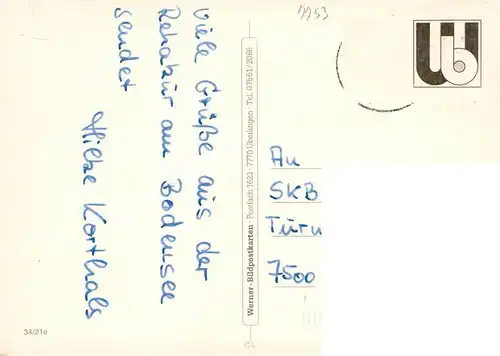 Viele Grüße aus der
Rehakur am Bodensee
sendet
Hilke Korthals
Werner-Bildpostkarten · Postfach 1623 · 7770 Überlingen · Tel. 07551/2066
34/21e
An
SKB
Türn
7500